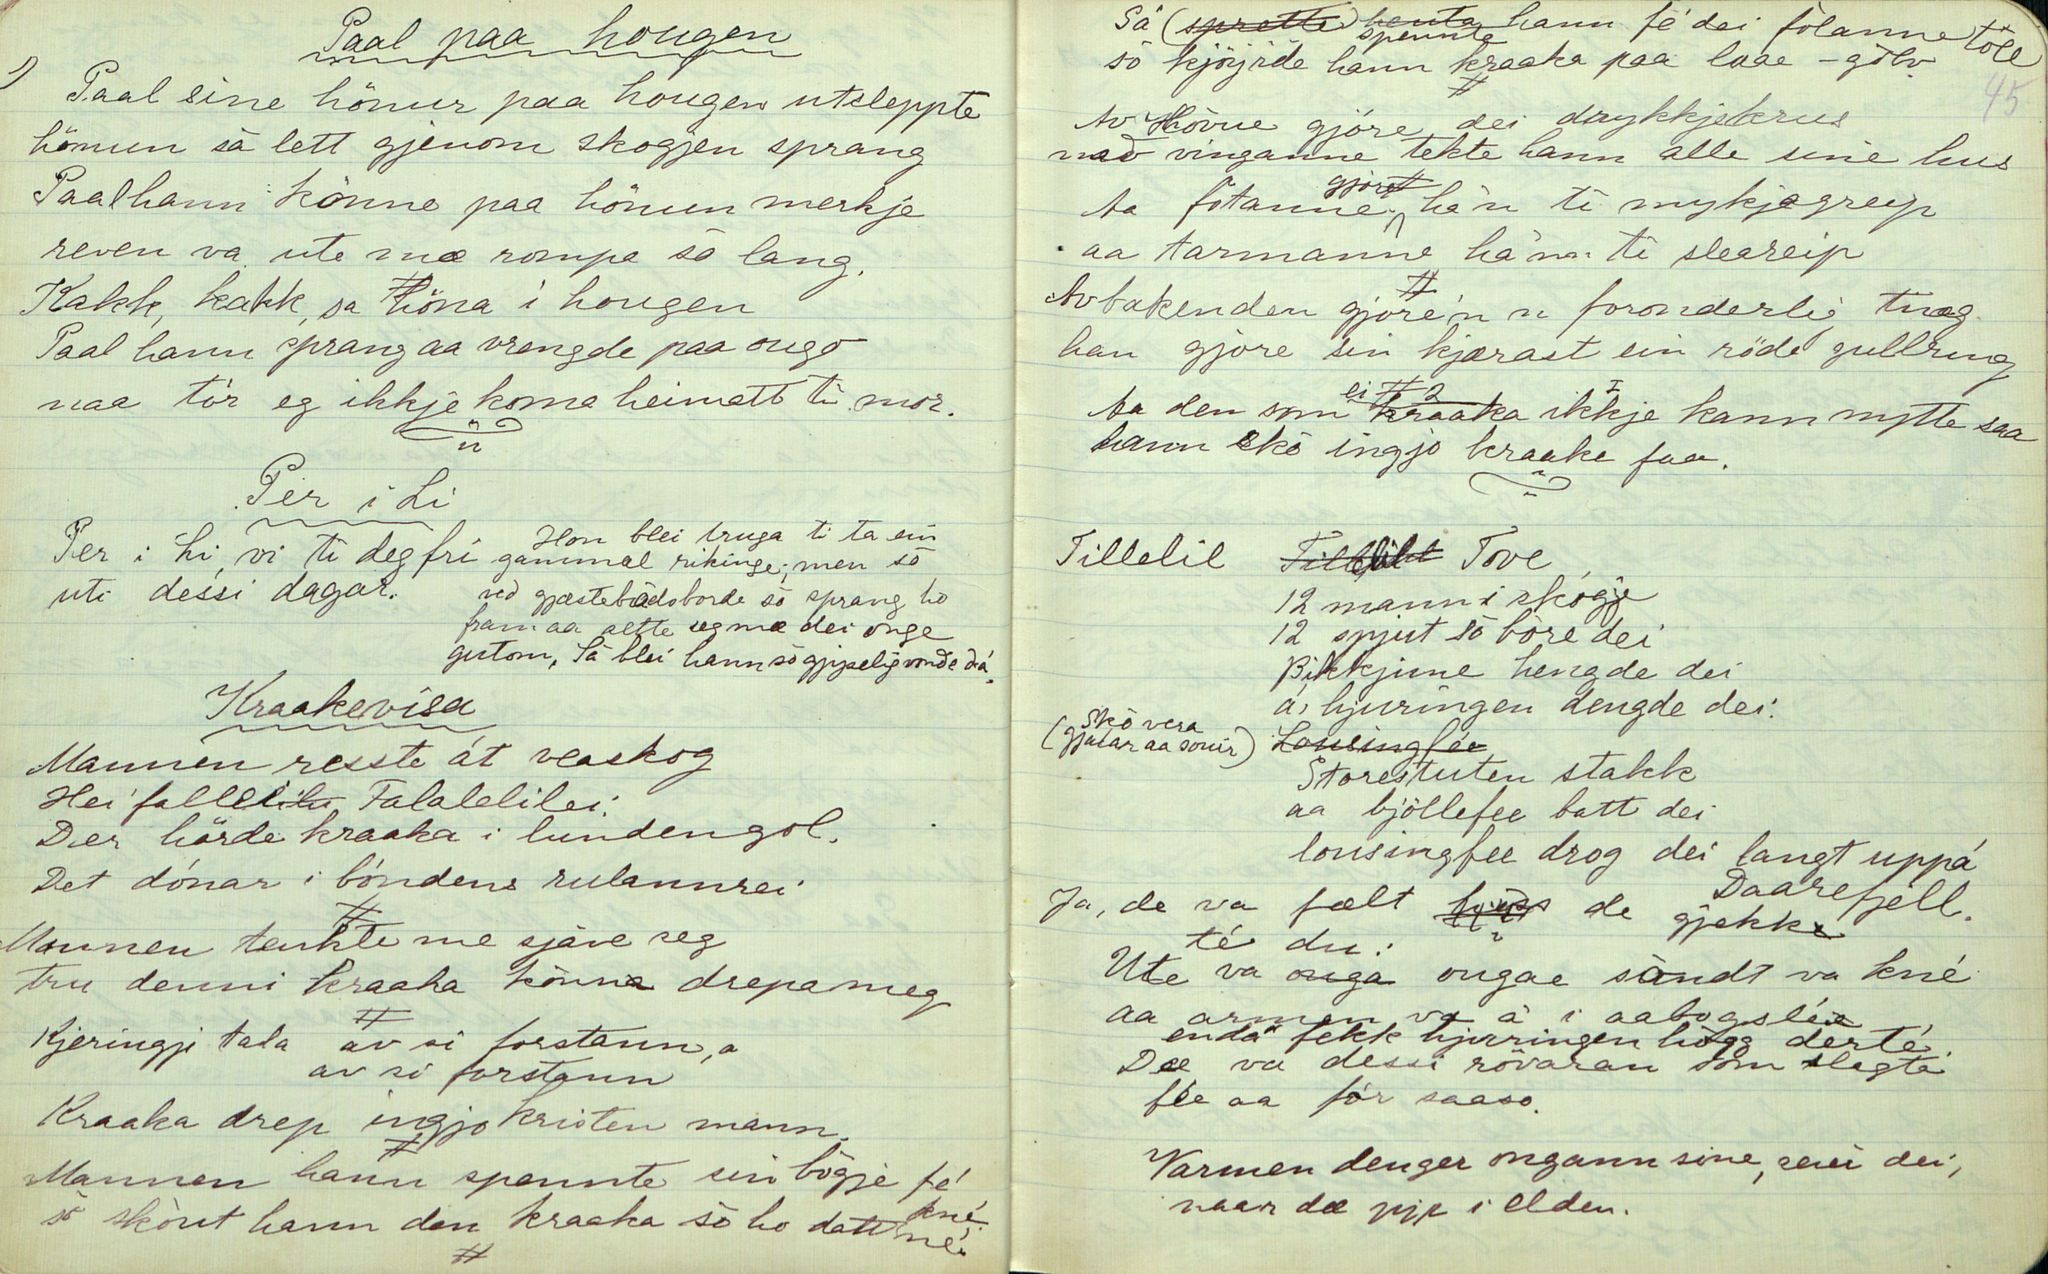 Paal paa hougen
1) Paal sine hönur paa hougen utsleppte
hönun så lett gjenom skogjen sprang
Paal hann könne paa hönun merkje
reven va ute mæ rompe so lang.
Kakk, kakk, sa höna i hougen
Paal hann sprang aa vrengde paa ougo
naa tór eg ikkje koma heimatt ti mor.
Per i Li
Per i Li, vi ti deg fri
uti dessi dagar.
Hon blei truga ti ta ein
gammal rikinge, men so
ved gjæstebådsborde so sprang ho
fram aa sette seg mæ dei onge
gutom. Så blei hann so gjipelig vonde då.
Kraakevisa
Mannen resste át veaskog
Hei fallelilu Falalelilei.
Der hörde kraaka i lunden gol.
Det dónar i bóndens rulannrei
#
Mannen tenkte me sjåve seg
tru denni kraaka könna drepa meg
#
Kjeringji tala av si forstann, a
av si forstann
Kraaka drep ingjo kristen mann.
#
Mannen hann spennte sin bögje fé kné
so skòut hann den kraaka so ho datt né
#
Så (sprette) henta spennte hann fé dei fòlanne tòle
so kjörjrde hann kraaka paa laae-gòlv.
45
#
Av Hòvue gjóre dei drykkjekrus
mæ vinganne tekte hann alle sine hus
Aa fötanne gjort hà'n ti mykjagreip
aa tarmanne hà'n ti sleareip
#
Av bakenden gjóre'n n foronderlig ting
han gjore sin kjærast ein röde gullring
#
Aa den som ei kraaka 2 ikkje 1 kann nytte saa
hann sko ingjo kraake faa.
Tillelil Tillelil Tove,
12 mann i skogje
12 spjut so bòre dei
Bikkjune hengde dei
å, hjuringen dengde dei.
(Sko vera
gjætar aa souir) Lousingfee
Storestuten stakk
aa bjöllefee batt dei
lousingfee drog dei langt uppå
Daarefjell.
Ja, de va fælt de gjekk
té du:
Ute va ouga ougae sandt va kné
aa armen va å i aabogslée
endå fekk hjuringen högg derté.
Dee va dessi rövaran som slegte
fée aa fór saaso.
Varmen denger ongann sine, seie dei,
naar dæ pip i elden.